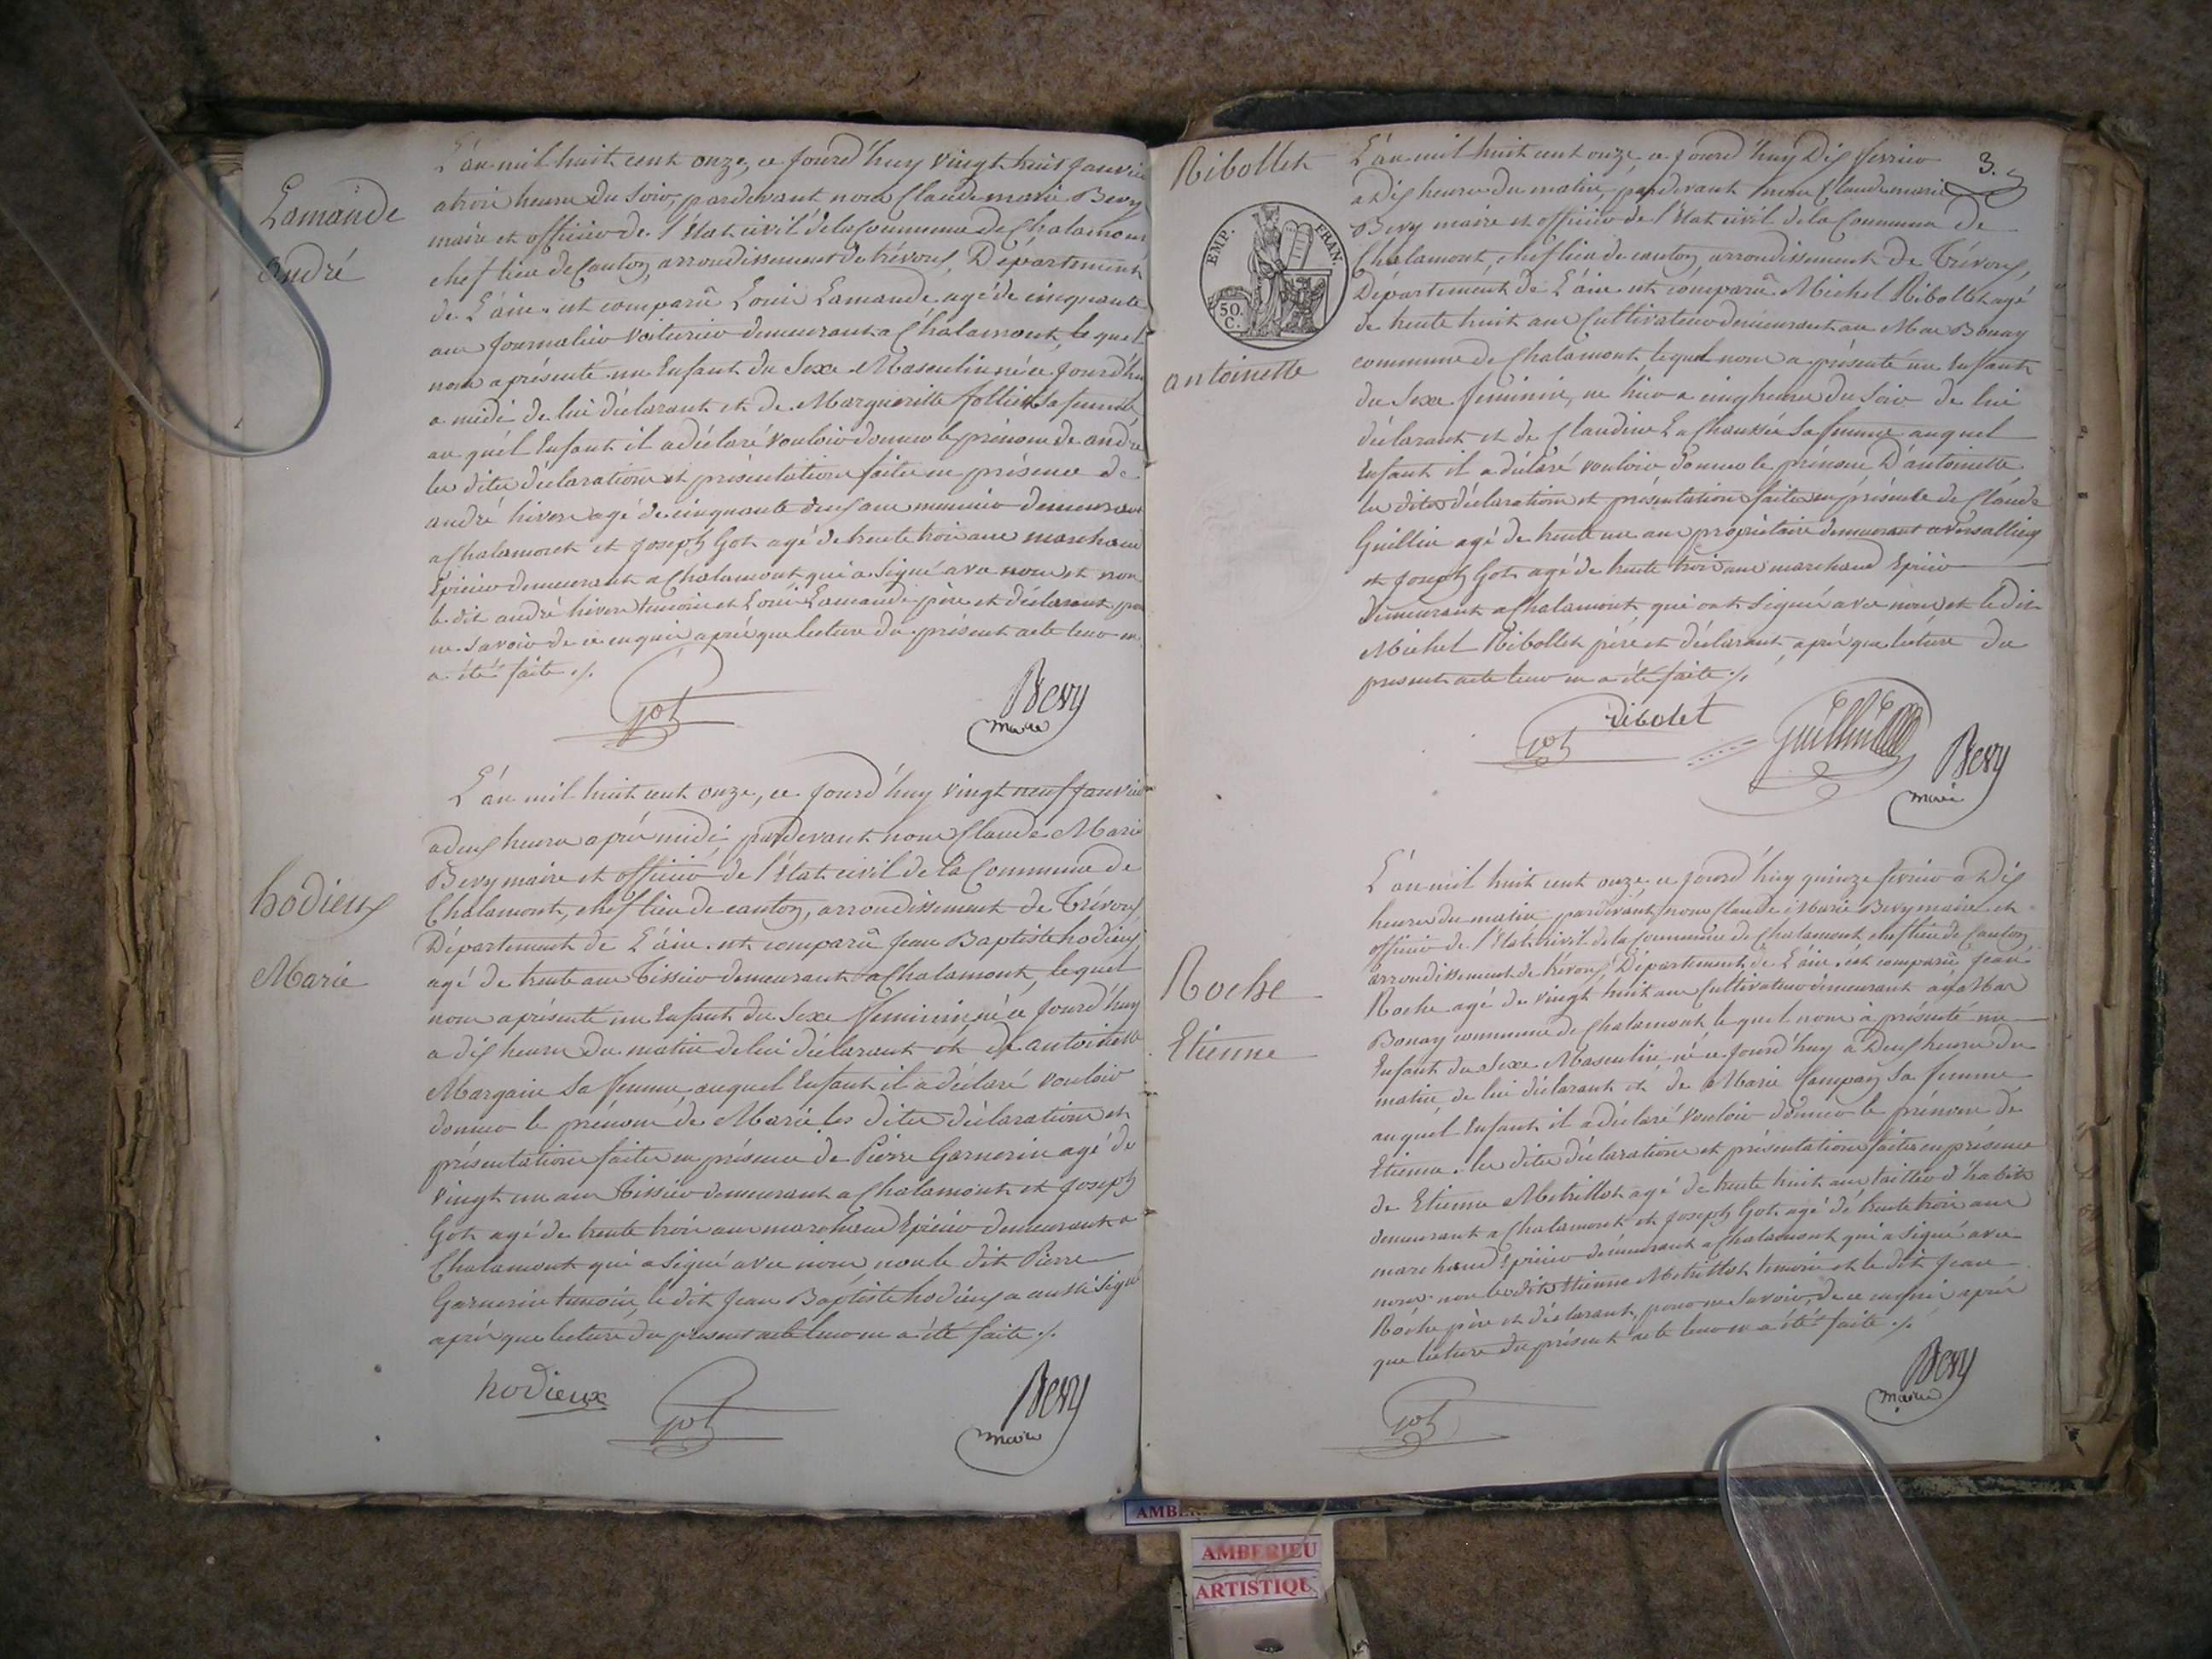 Lamande
andré
L'an mil huit cent onze, ce jourd'huy vingt huit janvier
a troix heure du soir, pardevant nous Claude marie Bevy
maire et officier de l'état civil de la Commune de Chalamont
chef lieu de Canton, arrondissement de trévoux, Département
de L'ain. est comparû Louis Lamande agé de cinquante
ans journalier voiturier demeurant a Chalamont, le quel
nous a présenté un Enfant du Sexe Masculin né ce jourd'hui
a midi de lui déclarant et de Margueritte follict Sa femme,
au quel Enfant il a déclaré vouloir donner le prénom de andré
les dites déclaration et présentation faites en présence de
andré hivere agé de cinquante deux ans demeurant
a Chalamont et Joseph Got agé de trente trois ans marchand
Epicier demeurant a Chalamont qui a Signé avec nous et non
le dit andré hivere temoin et Louis Lamande père et déclarant pour
ne savoir de ce enquis après que lecture du présent acte leur en
a été faite ./.
Got
Bevy
maire
hodieux
Marie
L'an mil huit cent onze, ce jourd'huy vingt neuf janvier
a deux heures après midi, pardevant nous Claude Marie
Bevy maire et officier de l'état civil de la Commune de
Chalamont, chef lieu de canton, arrondissement de Trévoux
Département de L'ain. est comparû Jean Baptiste hodieux
agé de trente ans Tissier demeurant a Chalamont, lequel
nous a présenté un Enfant du Sexe féminin né ce jourd'huy
a dix heures du matin de lui déclarant et de antoinette
Margain Sa femme, auquel Enfant il a déclaré vouloir
donner le prénom de Marie les dites déclaration et
présentation faites en présence de Pierre Garnerin agé de
vingt un ans Tissier demeurant a Chalamont et Joseph
Got agé de trente trois ans marchand Epicier demeurant a
Chalamont qui a Signé avec nous, non le dit Pierre
Garnerin temoin, le dit Jean Baptiste hodieux a aussi signé
après que lecture du présent acte leur en a été faite ./.
hodieux
Got
Bevy
maire
3.
Ribollet
EMP. FRAN.
50.
C.
antoinette
L'an mil huit cent onze, ce jourd'huy Dix fevrier
a Dix heures du matin, pardevant nous Claude marie
Bevy maire et officier de l'état civil de la Commune de
Chalamont, chef lieu de canton, arrondissement de Trévoux,
Département de L'ain est comparû Michel Ribollet agé
de trente huit ans Cultivateur demeurant au Mas Bonay
commune de Chalamont lequel nous a présenté un Enfant
du Sexe féminin, né hier a cinq heures du Soir de lui
déclarant et de Claudine La Chaussée Sa femme auquel
Enfant il a déclaré vouloir donner le prénom D'antoinette
les dites déclaration et présentation faites en présence de Claude
Guillin agé de trente un ans propriétaire demeurant a versallieux
et Joseph Got agé de trente trois ans marchand Epicier
demeurant a Chalamont qui ont Signé avec nous et le dit
Michel Ribollet père et déclarant, après que lecture du
present acte leur en a été faite ./.
Got
Ribolet
Guillin
Bevy
maire
Roche
Etienne
L'an mil huit cent onze, ce jourd'huy quinze fevrier a Dix
heures du matin pardevant nous Claude Marie Bevy maire et
officier de l'état civil de la Commune de Chalamont chef lieu de Canton,
arrondissement de trévoux, Département de L'ain. est comparû Jean
Roche agé de vingt huit ans Cultivateur demeurant au Mas
Bonay commune de Chalamont lequel nous a présenté un
Enfant du Sexe Masculin, né ce jourd'huy a Deux heures du
matin, de lui déclarant et de Marie Sa femme
auquel Enfant il a déclaré vouloir donner le prénom de
Etienne. les dites déclaration et présentation faites en présence
de Etienne Metrillot agé de trente huit ans tailleur d'habits
demeurant a Chalamont et Joseph Got agé de trente trois ans
marchand Epicier demeurant a Chalamont qui a Signé avec
nous non le dit Etienne Metrillot temoin et le dit Jean
Roche père et déclarant, pour ne Savoir, de ce enquis après
que lecture du présent acte leur en a été faite ./.
Got
Bevy
maire
AMBERIEU
ARTISTIQU